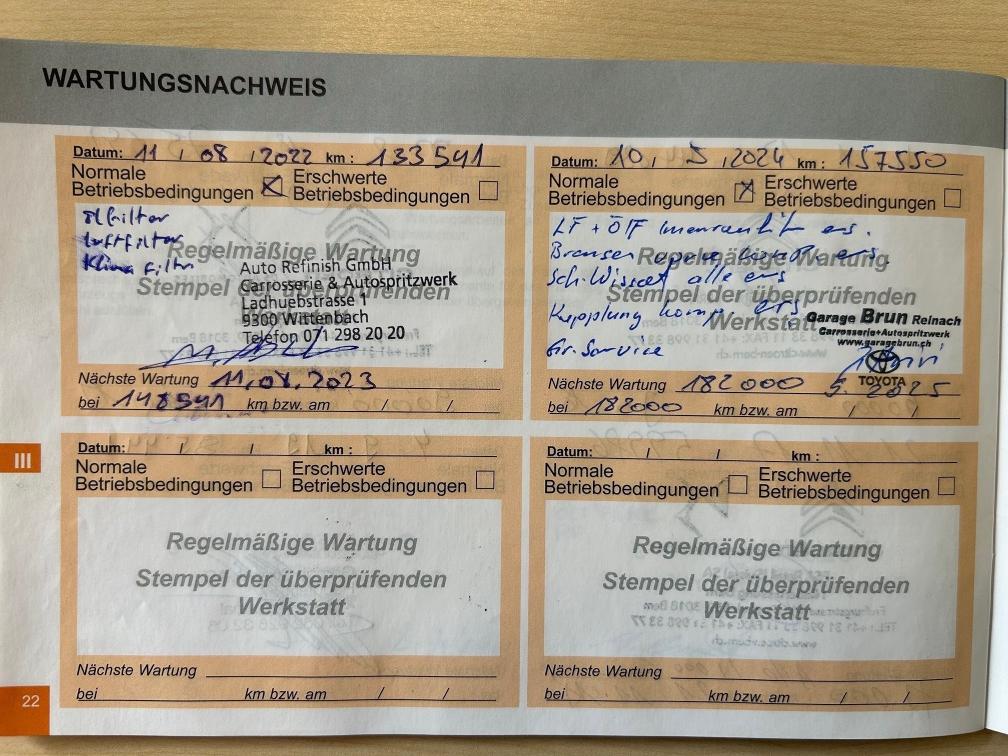 WARTUNGSNACHWEIS
Datum: 11 / 08 / 2022 km : 133541
Normale
Betriebsbedingungen
Erschwerte
Betriebsbedingungen
Ölfilter
Luftfilter
Klima Filter
Regelmäßige Wartung
Stempel der überprüfenden
Auto Refinish GmbH
Carrosserie & Autospritzwerk
Ladhuebstrasse 1
9300 Wittenbach
Telefon 071 298 20 20
Nächste Wartung 11.08.2023
bei 148541 km bzw. am / /
Datum: 10 / 5 / 2024 km : 157550
Normale
Betriebsbedingungen
Erschwerte
Betriebsbedingungen
LF + ÖTF ers.
alle ers
Kupplung komp. ers
Gr. Service
Regelmäßige Wartung
Stempel der überprüfenden
Werkstatt
Garage Brun Reinach
Carrosserie+Autospritzwerk
www.garagebrun.ch
TOYOTA
Nächste Wartung 182000 5. 2025
bei 182000 km bzw. am / /
III
Datum: / / km :
Normale
Betriebsbedingungen
Erschwerte
Betriebsbedingungen
Regelmäßige Wartung
Stempel der überprüfenden
Werkstatt
Nächste Wartung
bei km bzw. am / /
Datum: / / km :
Normale
Betriebsbedingungen
Erschwerte
Betriebsbedingungen
Regelmäßige Wartung
Stempel der überprüfenden
Werkstatt
Nächste Wartung
bei km bzw. am / /
22